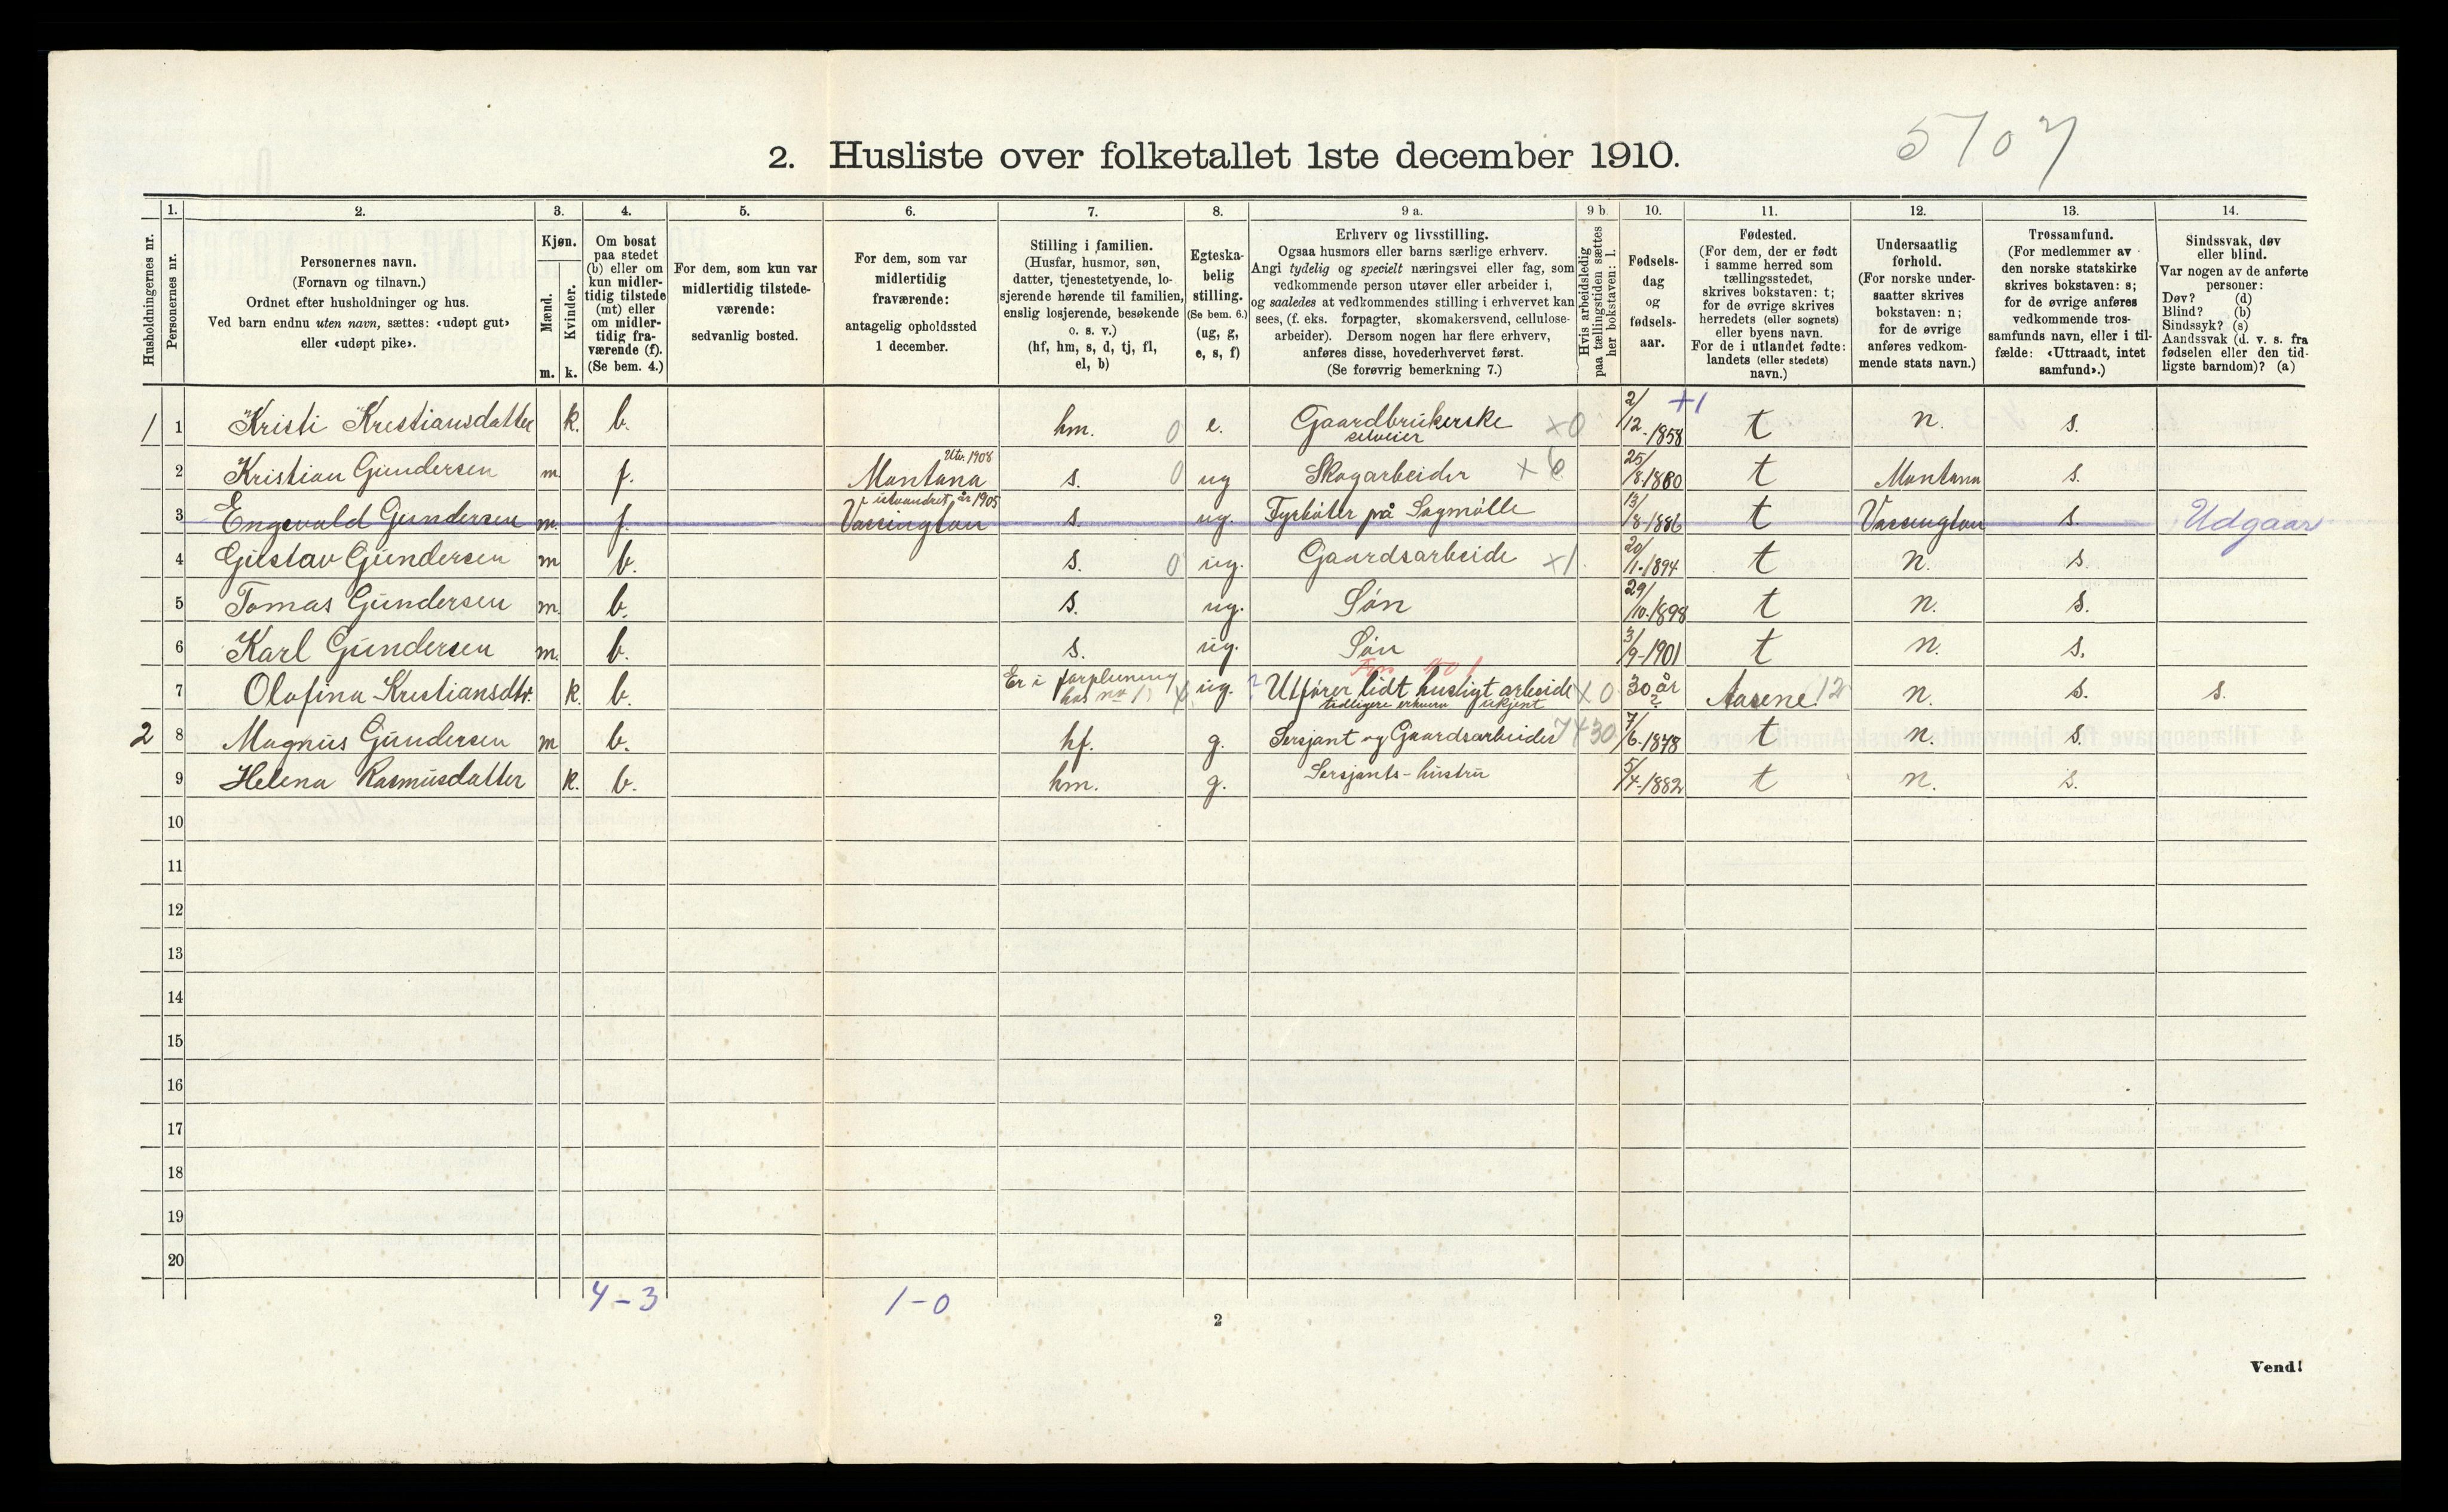 2. Husliste over folketallet 1ste december 1910.
5707
Husholdningernes nr.
1.
Personernes nr.
2.
Personernes navn.
(Fornavn og tilnavn.)
Ordnet efter husholdninger og hus.
Ved barn endnu uten navn, sættes: «udøpt gut»
eller «udøpt pike».
3.
Kjøn.
Mænd.
Kvinder.
m. k.
4.
Om bosat
paa stedet
(b) eller om
kun midler-
tidig tilstede
(mt) eller
om midler-
tidig fra-
værende (f).
(Se bem. 4.)
5.
For dem, som kun var
midlertidig tilstede-
værende:
sedvanlig bosted.
6.
For dem, som var
midlertidig
fraværende:
antagelig opholdssted
1 december.
7.
Stilling i familien.
(Husfar, husmor, søn,
datter, tjenestetyende, lo-
sjerende hørende til familien,
enslig losjerende, besøkende
o. s. v.)
(hf, hm, s, d, tj, fl,
el, b)
8.
Egteska-
belig
stilling.
(Se bem. 6.)
(ug, g,
e, s, f)
9 a.
Erhverv og livsstilling.
Ogsaa husmors eller barns særlige erhverv.
Angi tydelig og specielt næringsvei eller fag, som
vedkommende person utøver eller arbeider i,
og saaledes at vedkommendes stilling i erhvervet kan
sees, (f. eks. forpagter, skomakersvend, cellulose-
arbeider). Dersom nogen har flere erhverv,
anføres disse, hovederhvervet først.
(Se forøvrig bemerkning 7.)
9 b.
Hvis arbeidsledig
paa tællingstiden sættes
her bokstaven: l.
10.
Fødsels-
dag
og
fødsels-
aar.
11.
Fødested.
(For dem, der er født
i samme herred som
tællingsstedet,
skrives bokstaven: t;
for de øvrige skrives
herredets (eller sognets)
eller byens navn.
For de i utlandet fødte:
landets (eller stedets)
navn.)
12.
Undersaatlig
forhold.
(For norske under-
saatter skrives
bokstaven: n;
for de øvrige
anføres vedkom-
mende stats navn.)
13.
Trossamfund.
(For medlemmer av
den norske statskirke
skrives bokstaven: s;
for de øvrige anføres
vedkommende tros-
samfunds navn, eller i til-
fælde: «Uttraadt, intet
samfund».)
14.
Sindssvak, døv
eller blind.
Var nogen av de anførte
personer:
Døv? (d)
Blind? (b)
Sindssyk? (s)
Aandssvak (d. v. s. fra
fødselen eller den tid-
ligste barndom)? (a)
1 1 Kristi Kristiansdatter k. b. hm. 0 e. Gaardbrukerske selveier x0 2/12-1858 +1 t n. s.
2 Kristian Gundersen m f. Utv. 1908 Montana s. 0 ug Skogarbeider x 6 25/8-1880 t Montana s.
3 Engevald Gundersen m. f. utvandret år 1905 Vassington s. ug. Fyrbøter på Sagmølle 13/8-1886 t Vassington s. Udgaar
4 Gustav Gundersen m b. s. 0 ug. Gaardsarbeide x1. 20/1-1894 t n. s
5 Tomas Gundersen m. b. s. ug. Søn 29/10-1898 t n. s.
6 Karl Gundersen m. b. s. ug. Søn 3/9-1901 t n. s.
7 Olafina Kristiansdtr. k. b. Er i forpleining hos no 1 x ug. Utfører lidt husligt arbeide tidligere erhverv ukjent x 0 30 år ? Aasene 12 n. s. s.
2 8 Magnus Gundersen m b. hf. g. Sersjant og Gaardsarbeider 7430 7/6-1878 t n. s.
9 Helena Rasmusdatter k. b. hm. g. Sersjants-hustru 5/4-1882 t n. s.
10
11
12
13
14
15
16
17
18
19
20
4-3
1-0
2
Vend!